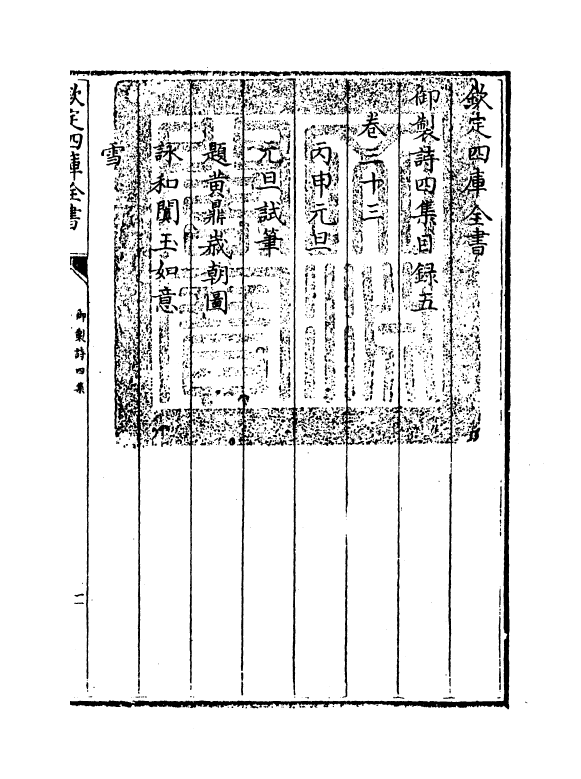 欽定四庫全書
御製詩四集目録五
卷三十三
丙申元旦
元旦試筆
題黄鼎嵗朝圖
詠和闐玉如意
雪
欽定四庫全書
御製詩四集